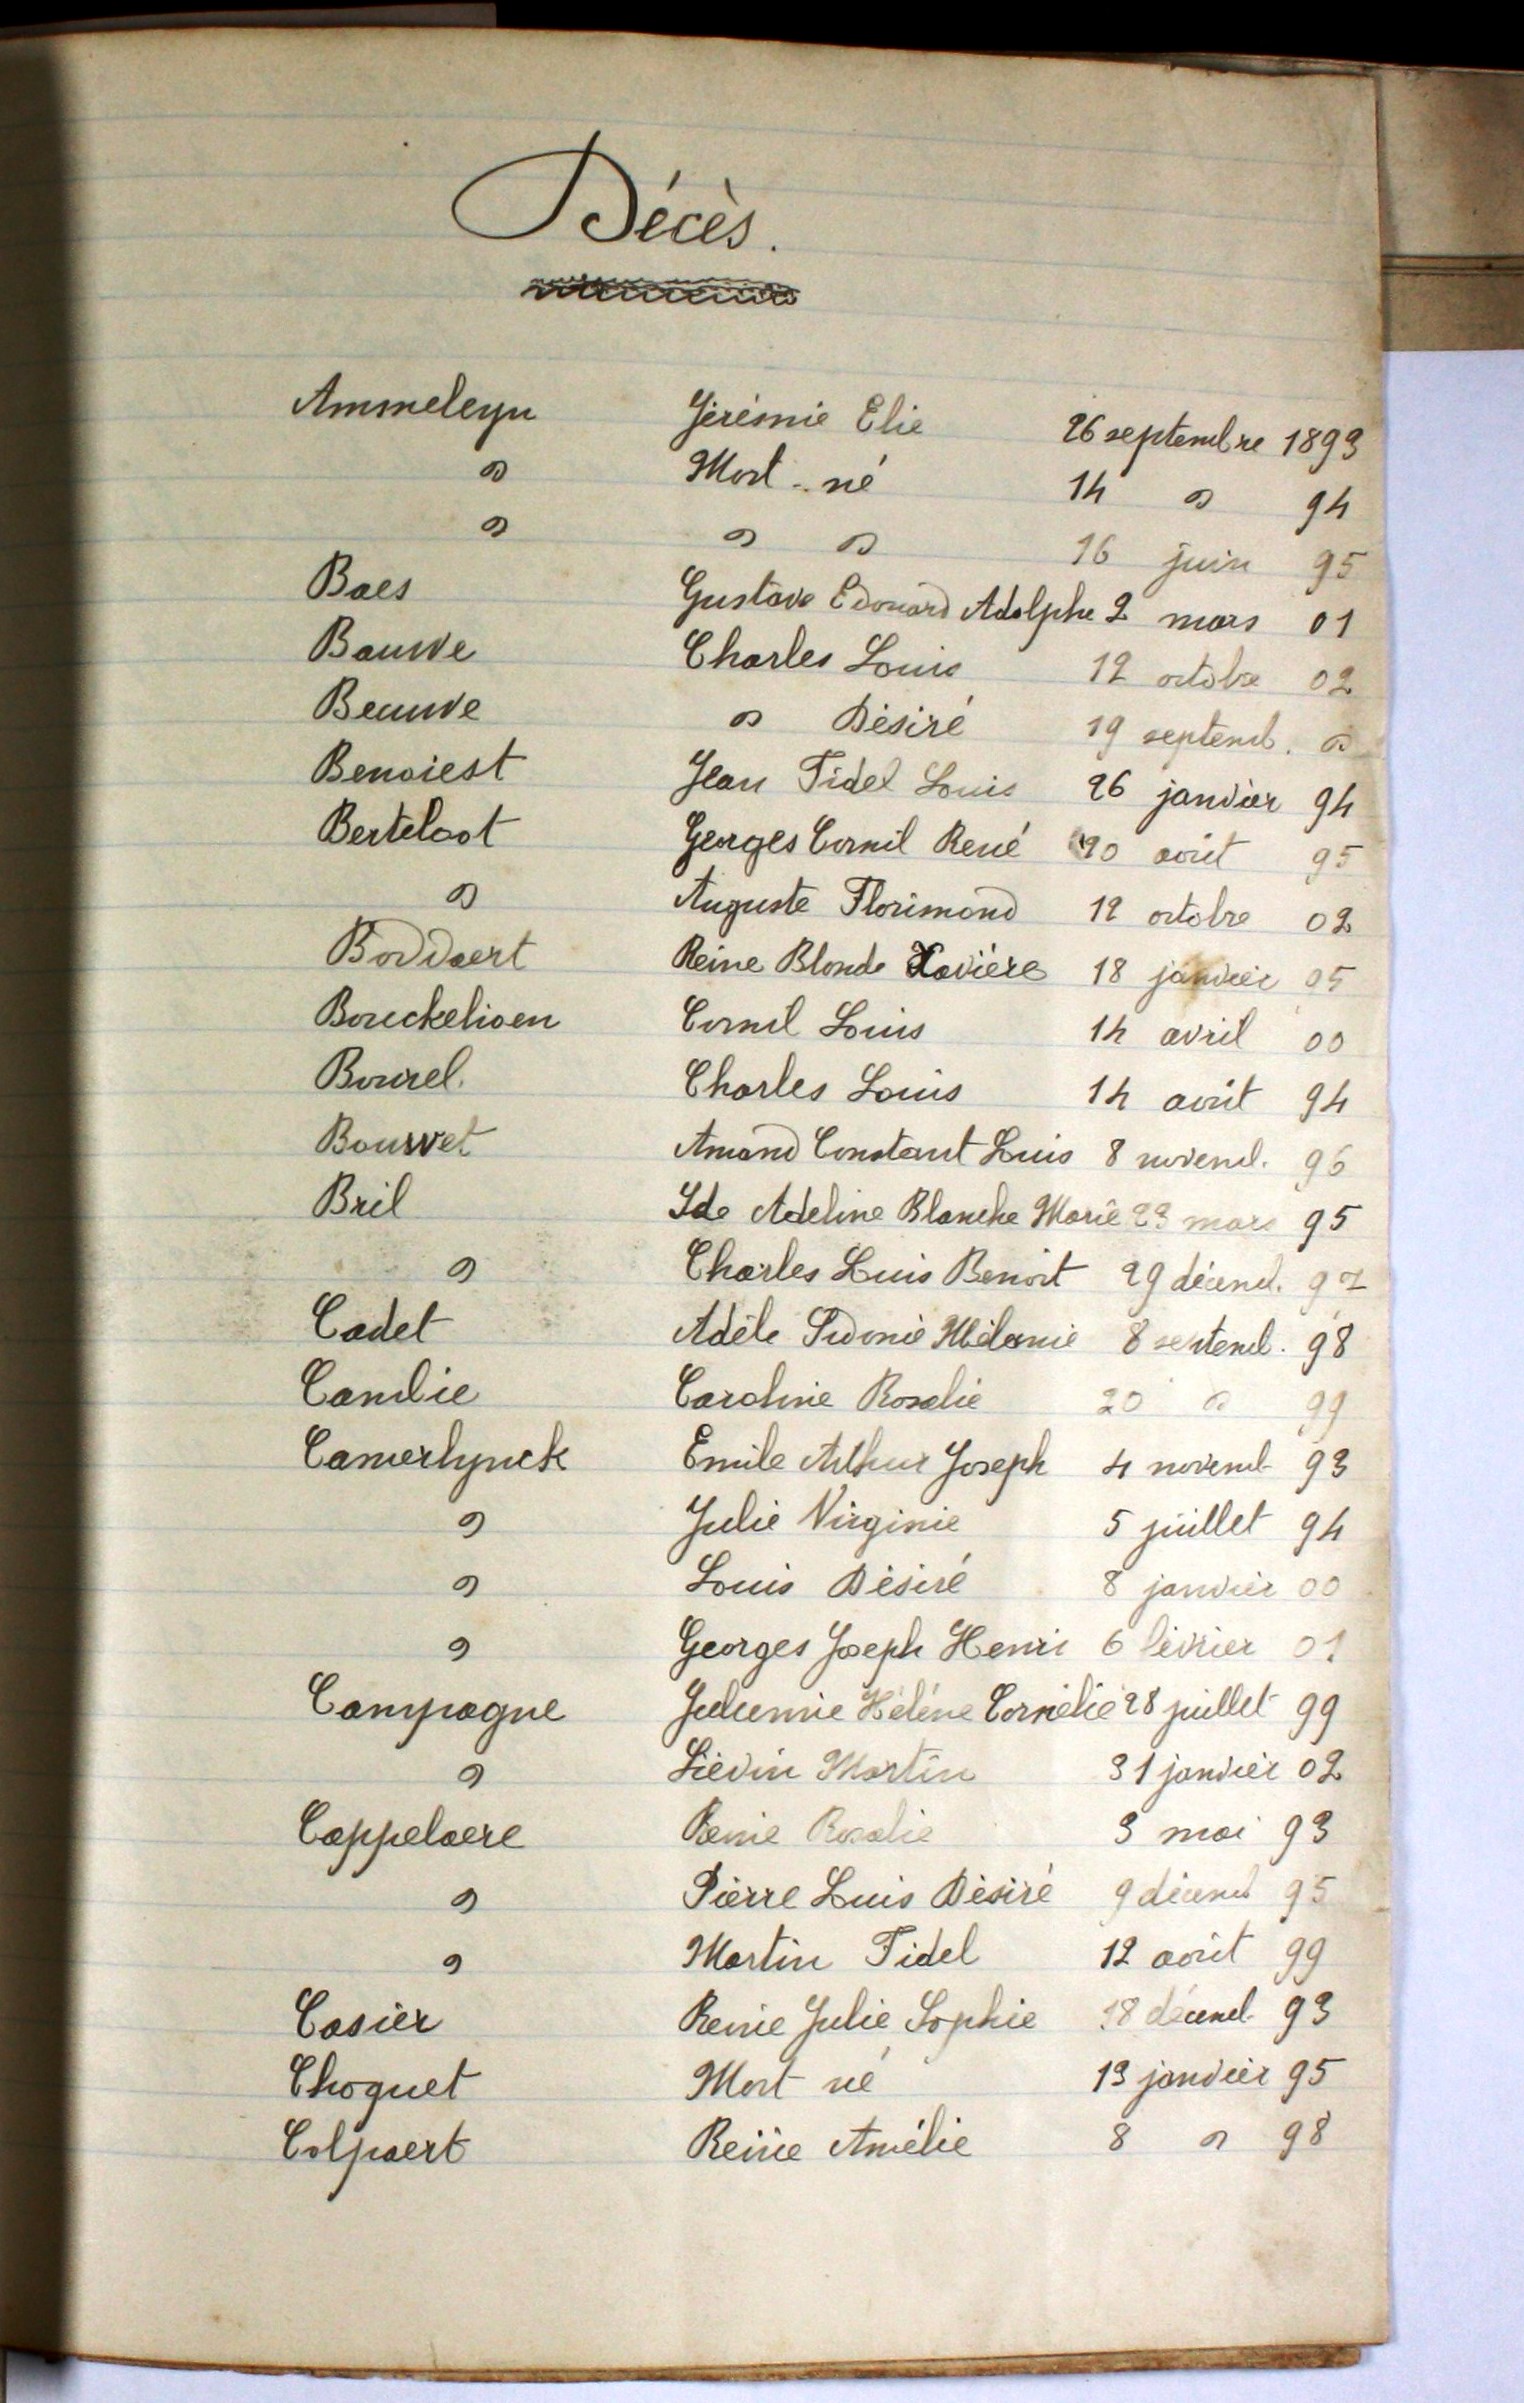 Décès.
Ammeleyn Jérémie Elie 26 septembre 1893
" Mort-né 14 " 94
" " " 16 juin 95
Baes Gustave Edouard Adolphe 2 mars 01
Bauwe Charles Louis 12 octobre 02
Beauve " Désiré 19 septemb. "
Benoiest Jean Fidel Louis 26 janvier 94
Berteloot Georges Cornil René 20 août 95
" Auguste Florimond 12 octobre 02
Boddaert Reine Blonde Xavière 18 janvier 05
Bouckelioen Cornil Louis 14 avril 00
Bourel Charles Louis 14 août 94
Bouvet Amand Constant Louis 8 novemb. 96
Bril Ida Adeline Blanche Marie 23 mars 95
" Charles Louis Benoit 29 décemb. 97
Cadet Adèle Sidonie Mélanie 8 septemb. 98
Cambie Caroline Rosalie 20 " 99
Camerlynck Emile Arthur Joseph 4 novemb 93
" Julie Virginie 5 juillet 94
" Louis Désiré 8 janvier 00
" Georges Joseph Henri 6 février 01
Campagne Julienne Hélène Cornélie 28 juillet 99
" Liévin Martin 31 janvier 02
Cappelaere Reine Rosalie 3 mai 93
" Pierre Louis Désiré 9 décemb 95
" Martin Fidel 12 août 99
Casier Reine Julie Sophie 18 décemb. 93
Choquet Mort né 13 janvier 95
Colpaert Reine Amélie 8 " 98